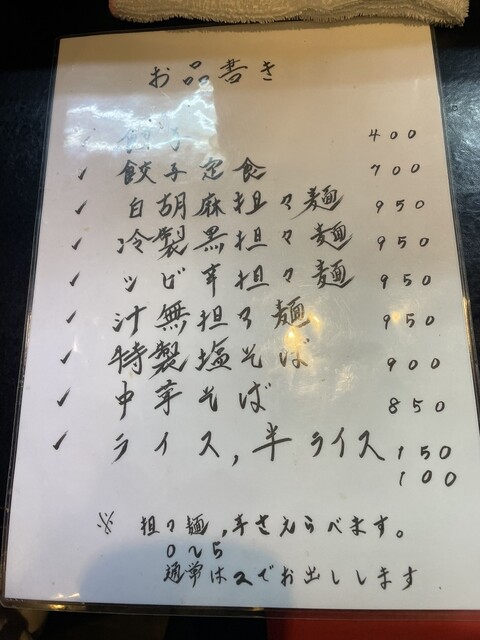 お品書き
餃子 400
餃子定食 700
白胡麻担々麺 950
冷製黒担々麺 950
シビ辛担々麺 950
汁無担々麺 950
特製塩そば 900
中華そば 850
ライス,半ライス 150
100
※ 担々麺,辛さえらべます。
0〜5
通常は2でお出しします